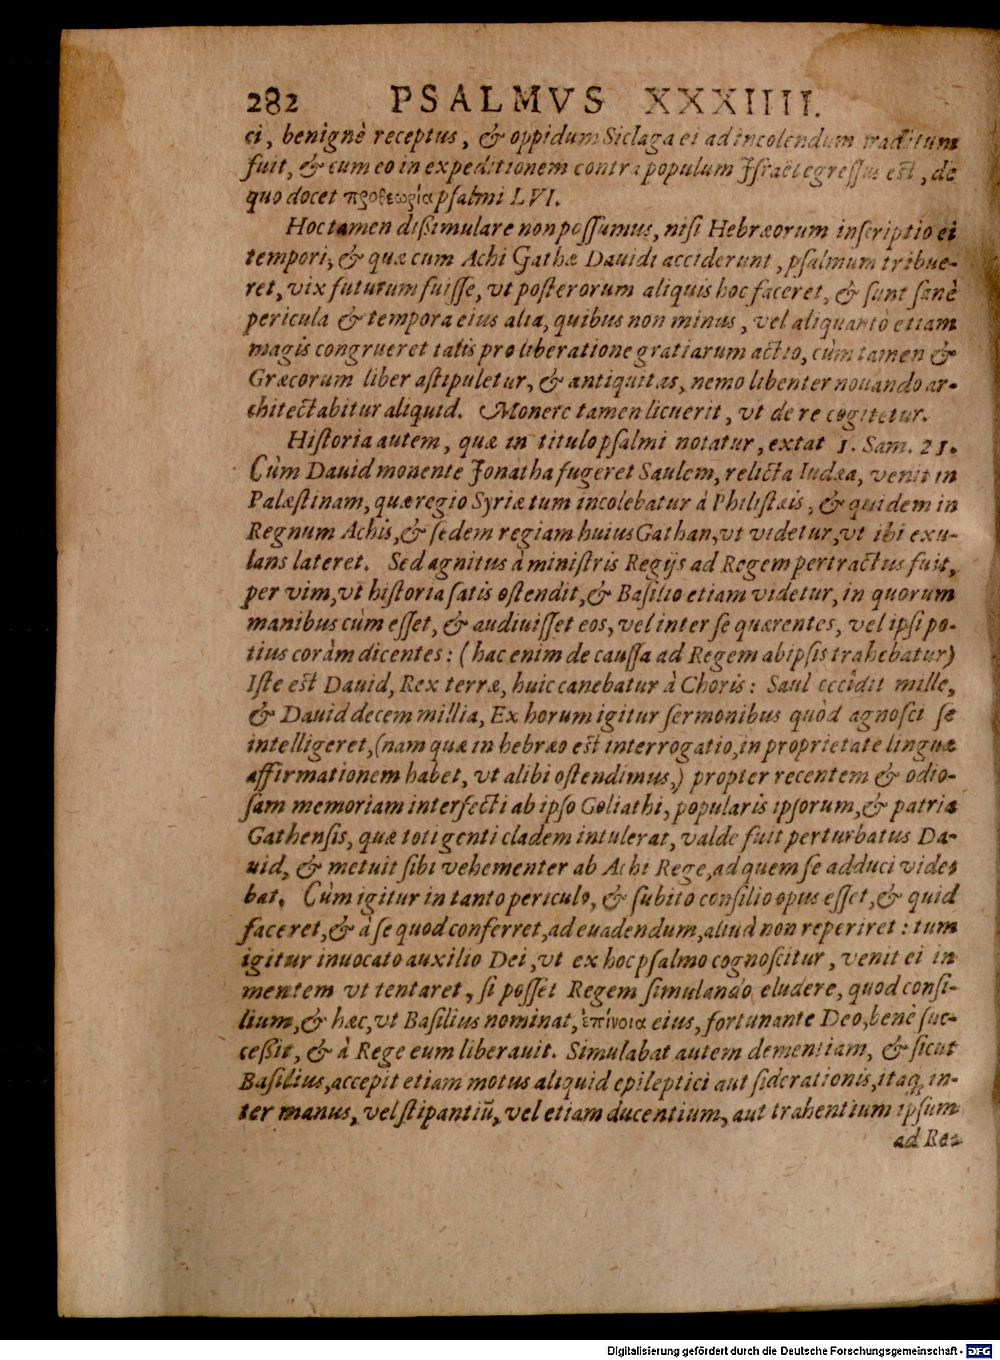 282 PSALMVS XXXIIII.
ci, benignè receptus, & oppidum Siclaga ei ad incolendum traditum
fuit, & cum eo in expeditionem contra populum Iſraël egreſſus eſt, de
quo docet προθεωρία pſalmi LVI.
Hoc tamen diſsimulare non poſſumus, niſi Hebræorum inſcriptio ei
tempori, & quæ cum Achi Gathæ Dauidi acciderunt, pſalmum tribue-
ret, vix futurum fuiſſe, vt poſterorum aliquis hoc faceret, & ſunt ſanè
pericula & tempora eius alia, quibus non minus, vel aliquantò etiam
magis congrueret talis pro liberatione gratiarum actio, cùm tamen &
Græcorum liber aſtipuletur, & antiquitas, nemo libenter nouando ar-
chitectabitur aliquid. Monere tamen licuerit, vt de re cogitetur.
Hiſtoria autem, quæ in titulo pſalmi notatur, extat 1. Sam. 21.
Cùm Dauid monente Jonatha fugeret Saulem, relicta Iudæa, venit in
Palæſtinam, quæ regio Syriæ tum incolebatur à Philiſtæis, & quidem in
Regnum Achis, & ſedem regiam huius Gathan, vt videtur, vt ibi exu-
lans lateret. Sed agnitus à miniſtris Regijs ad Regem pertractus fuit,
per vim, vt hiſtoria ſatis oſtendit, & Baſilio etiam videtur, in quorum
manibus cùm eſſet, & audiuiſſet eos, vel inter ſe quærentes, vel ipſi po-
tius coràm dicentes: (hac enim de cauſſa ad Regem ab ipſis trahebatur)
Iſte eſt Dauid, Rex terræ, huic canebatur à Choris: Saul occîdit mille,
& Dauid decem millia, Ex horum igitur ſermonibus quòd agnoſci ſe
intelligeret, (nam quæ in hebræo eſt interrogatio, in proprietate linguæ
affirmationem habet, vt alibi oſtendimus,) propter recentem & odio-
ſam memoriam interfecti ab ipſo Goliathi, popularis ipſorum, & patria
Gathenſis, quæ toti genti cladem intulerat, valde fuit perturbatus Da-
uid, & metuit ſibi vehementer ab Achi Rege, ad quem ſe adduci vide-
bat. Cùm igitur in tanto periculo, & ſubito conſilio opus eſſet, & quid
faceret, & à ſe quod conferret, ad euadendum, aliud non reperiret: tum
igitur inuocato auxilio Dei, vt ex hoc pſalmo cognoſcitur, venit ei in
mentem vt tentaret, ſi poſſet Regem ſimulando eludere, quod conſi-
lium, & hæc, vt Baſilius nominat, ἐπίνοια eius, fortunante Deo, benè ſuc-
ceßit, & à Rege eum liberauit. Simulabat autem dementiam, & ſicut
Baſilius, accepit etiam motus aliquid epileptici aut ſiderationis, itaq; in-
ter manus, vel ſtipantiū, vel etiam ducentium, aut trahentium ipſum
ad Re-
Digitalisierung gefördert durch die Deutsche Forschungsgemeinschaft - DFG